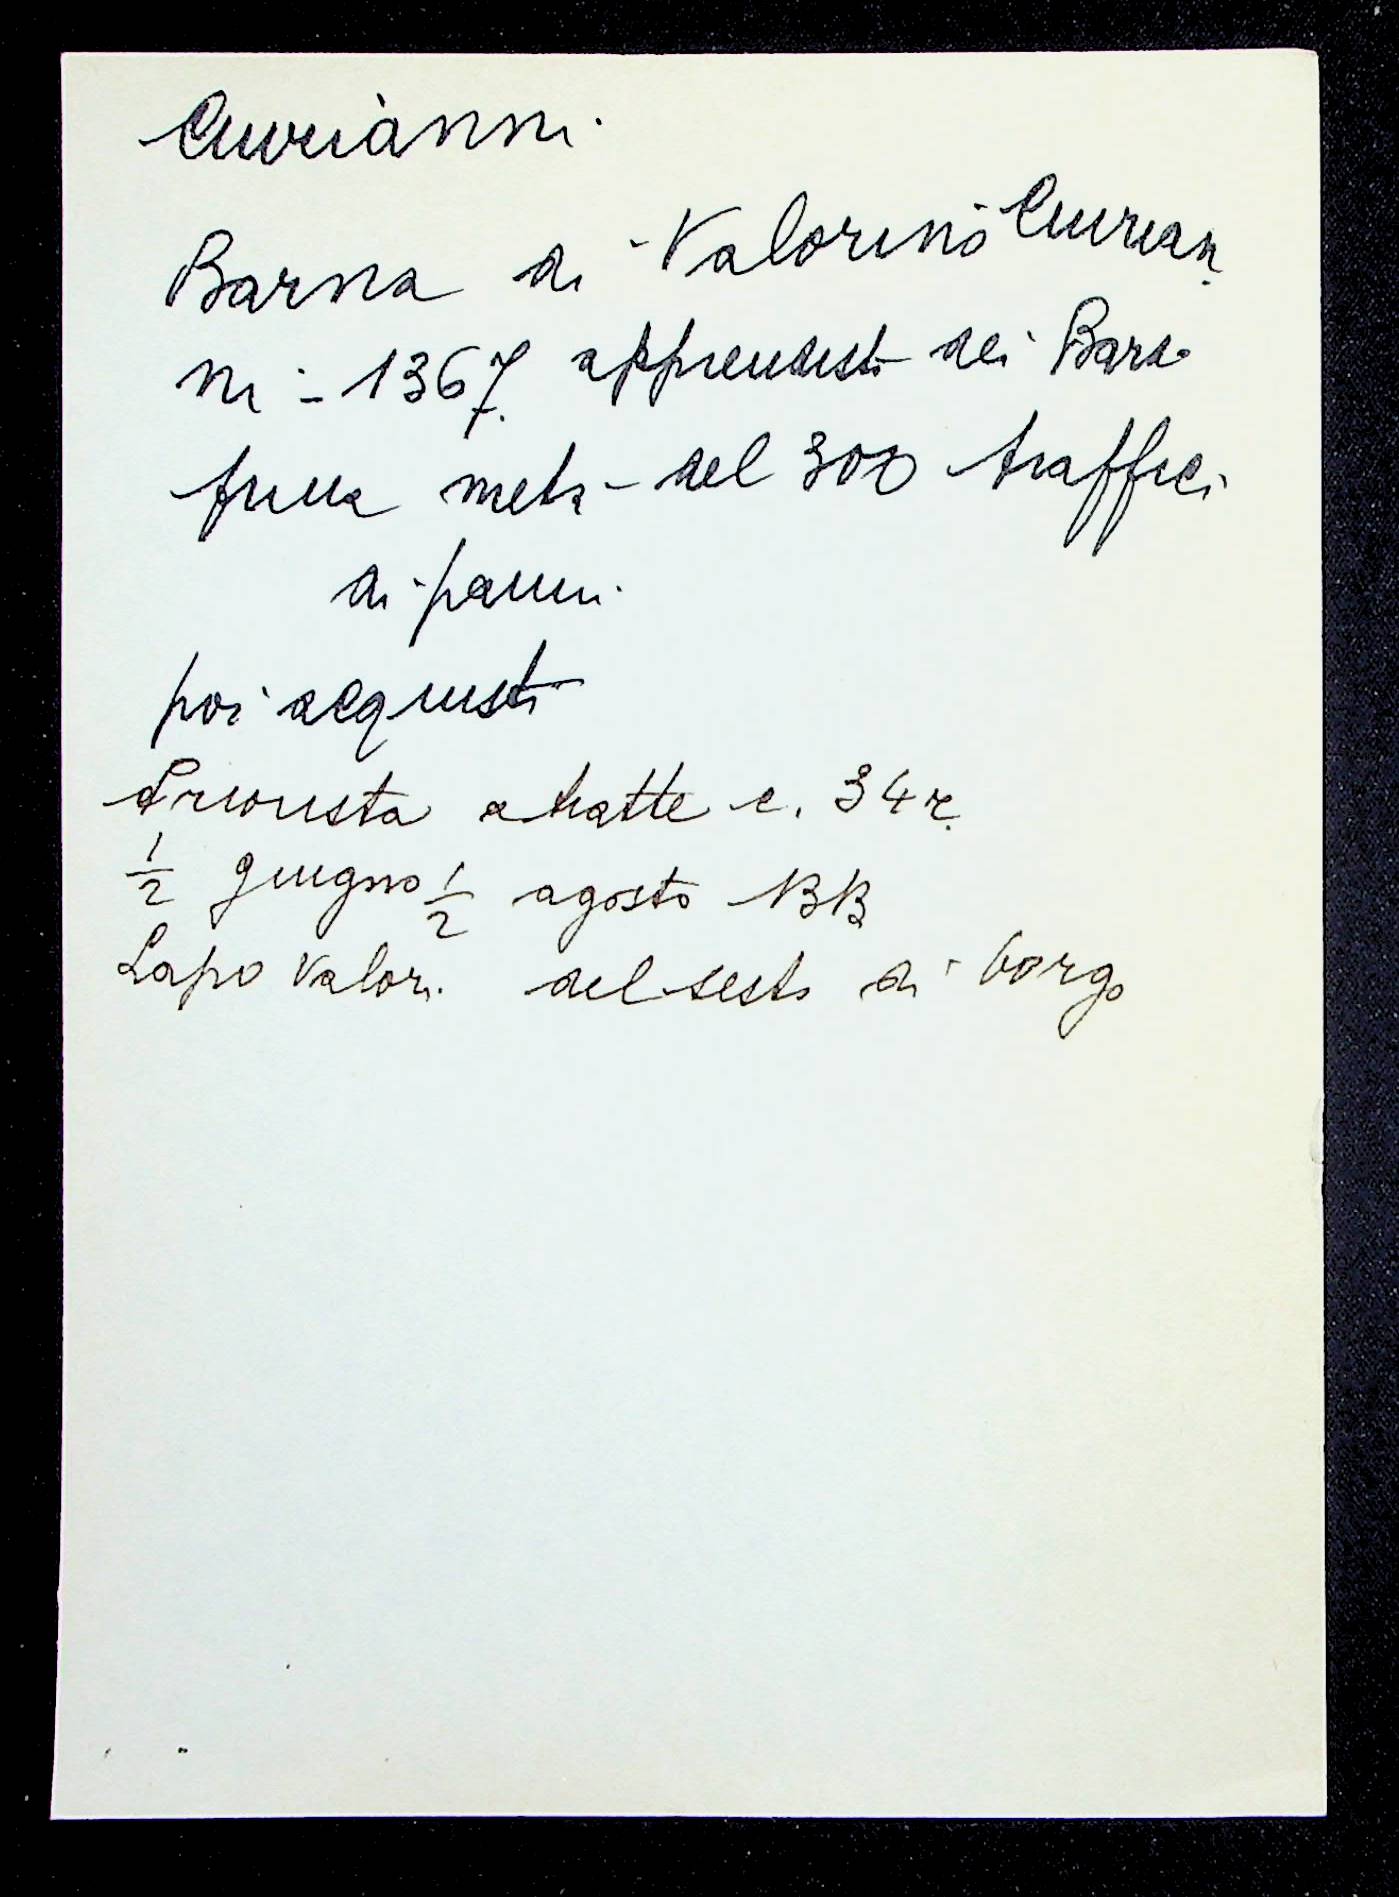 Ciurianni.
Barna di Valorino Ciurian
ni - 1367 apprendisti dei Bardi
prima metà del 300 traffici
di panni.
poi acquisti
Priorista a tratte c. 34 r.
1/2 giugno 1/2 agosto
Lapo Valori. del sesto di borgo